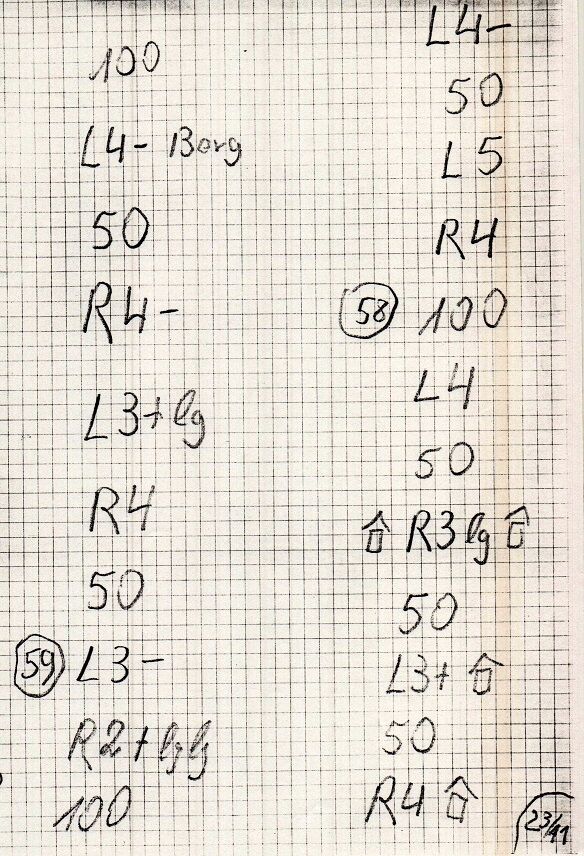 100
L4- Berg
50
R4-
L3+lg
R4
50
59 L3-
R2+lglg
100
L4-
50
L5
R4
58 100
L4
50
R3lg
50
L3+
50
R4
23/41